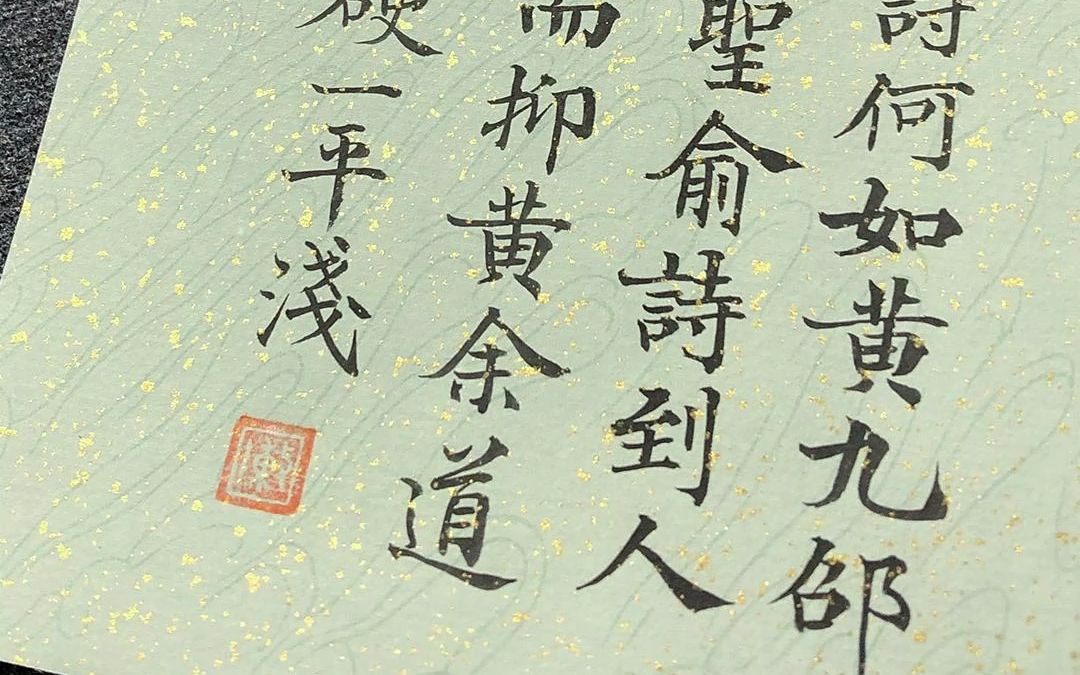 詩何如黄九邵
聖俞詩到人
而抑黄余道
硬一平淺